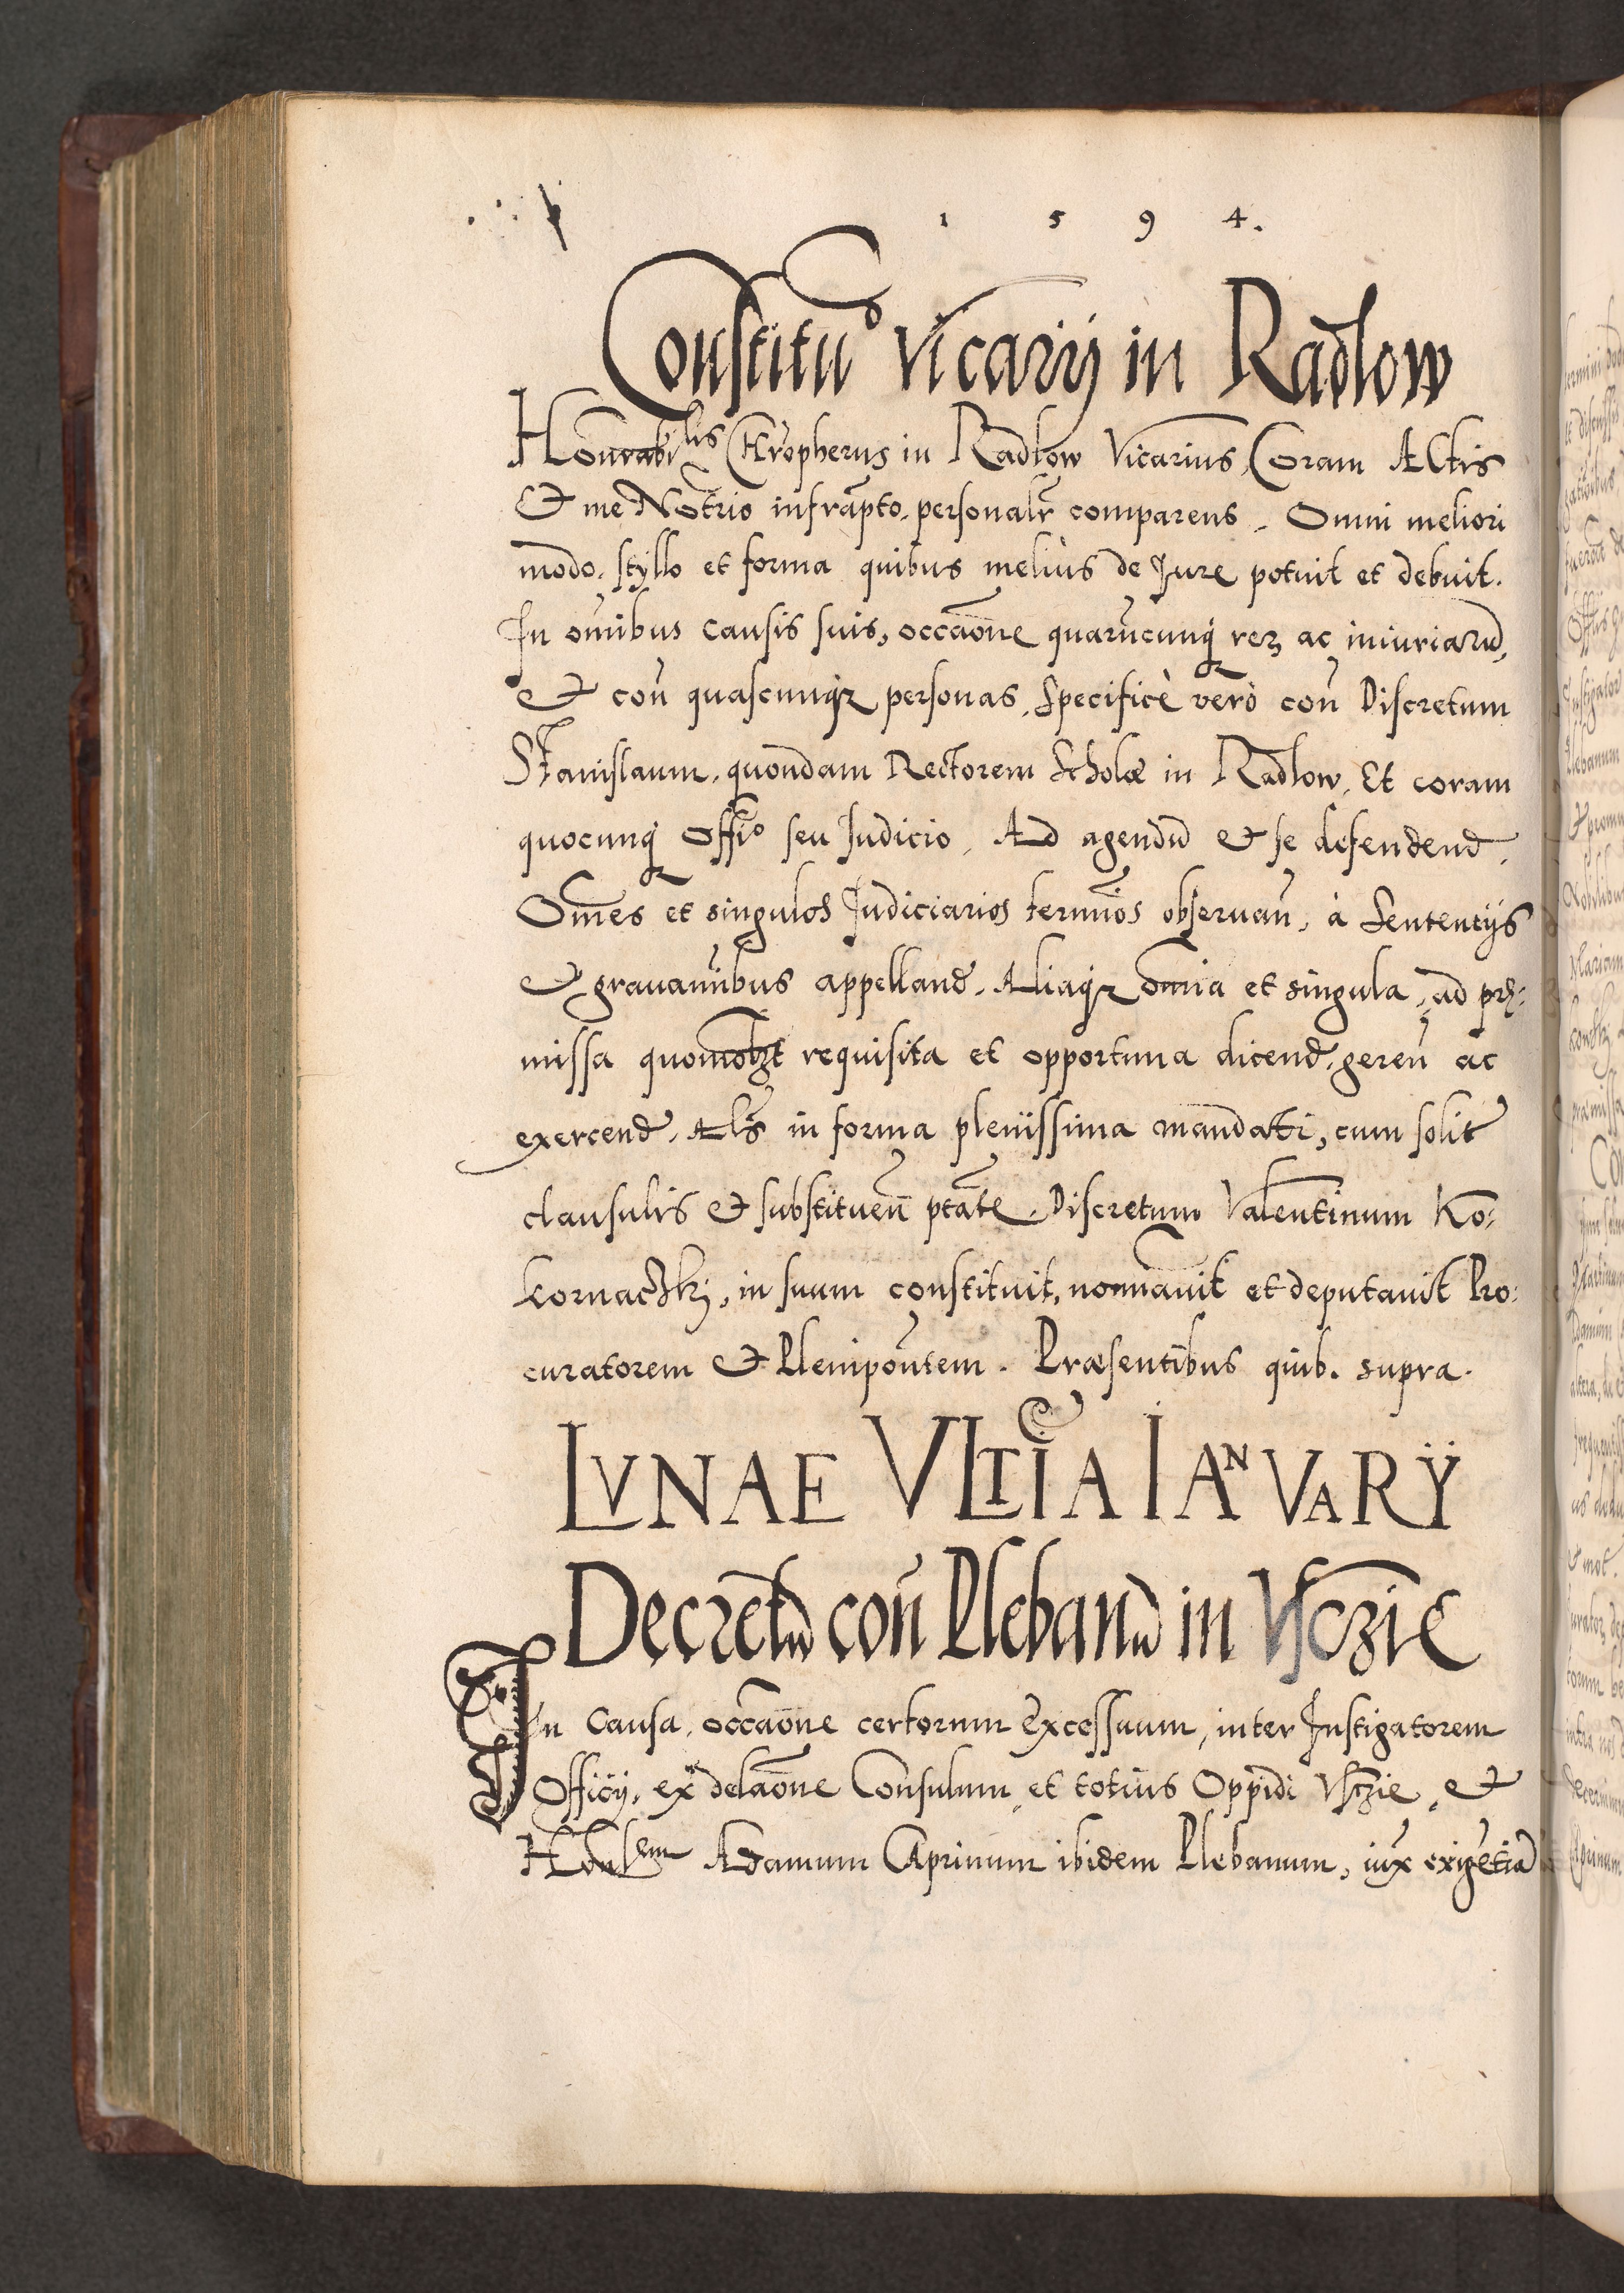 1594.
Constituō Vicarij in Radlow
Honrabilis Chr̃opherus in Radlow Vicarius, Coram Actis
Et me Notrio infrãpto, personalr̃ comparens. Omni meliori
modo, styllo et forma quibus melius de Jure potuit et debuit.
In om̃ibus causis suis, occaõne quarũcunq rez ac iniuriarũ,
et coñ quascunqz personas, Specificè verò coñ Discretum
Stanislaum, quondam Rectorem Scholæ in Radlow, Et coram
quocunq Offio seu Judicio, Ad agendũ et se defendend,
Om̃es et singulos Judiciarios termĩos obseruañ, à Sententijs
et grauamĩbus appelland, Aliaqz om̃ia et singula, ad prę:
missa quomolzt requisita et opportuna dicend, gereñ ac
exercend, Als̃ in forma plenissima mandati, cum solit
clausulis et substitueñ ptãte, Discretum Valentinum Ko:
kornaczkj, in suum constituit, nomĩauit et deputauit Pro:
curatorem et Plenipoñtem. Præsentibus quib. supra.
LVNAE VLTĨA IANVARÿ
Decretũ coñ Plebanũ in Vsczie
In Causa, occaõne certorum Excessuum, inter Instigatorem
Officij, ex delaõne Consulum, et totius Oppidi Vsczie, et
Honlem Adamum Caprinum ibidem Plebanum, iux̃ exigẽtiã